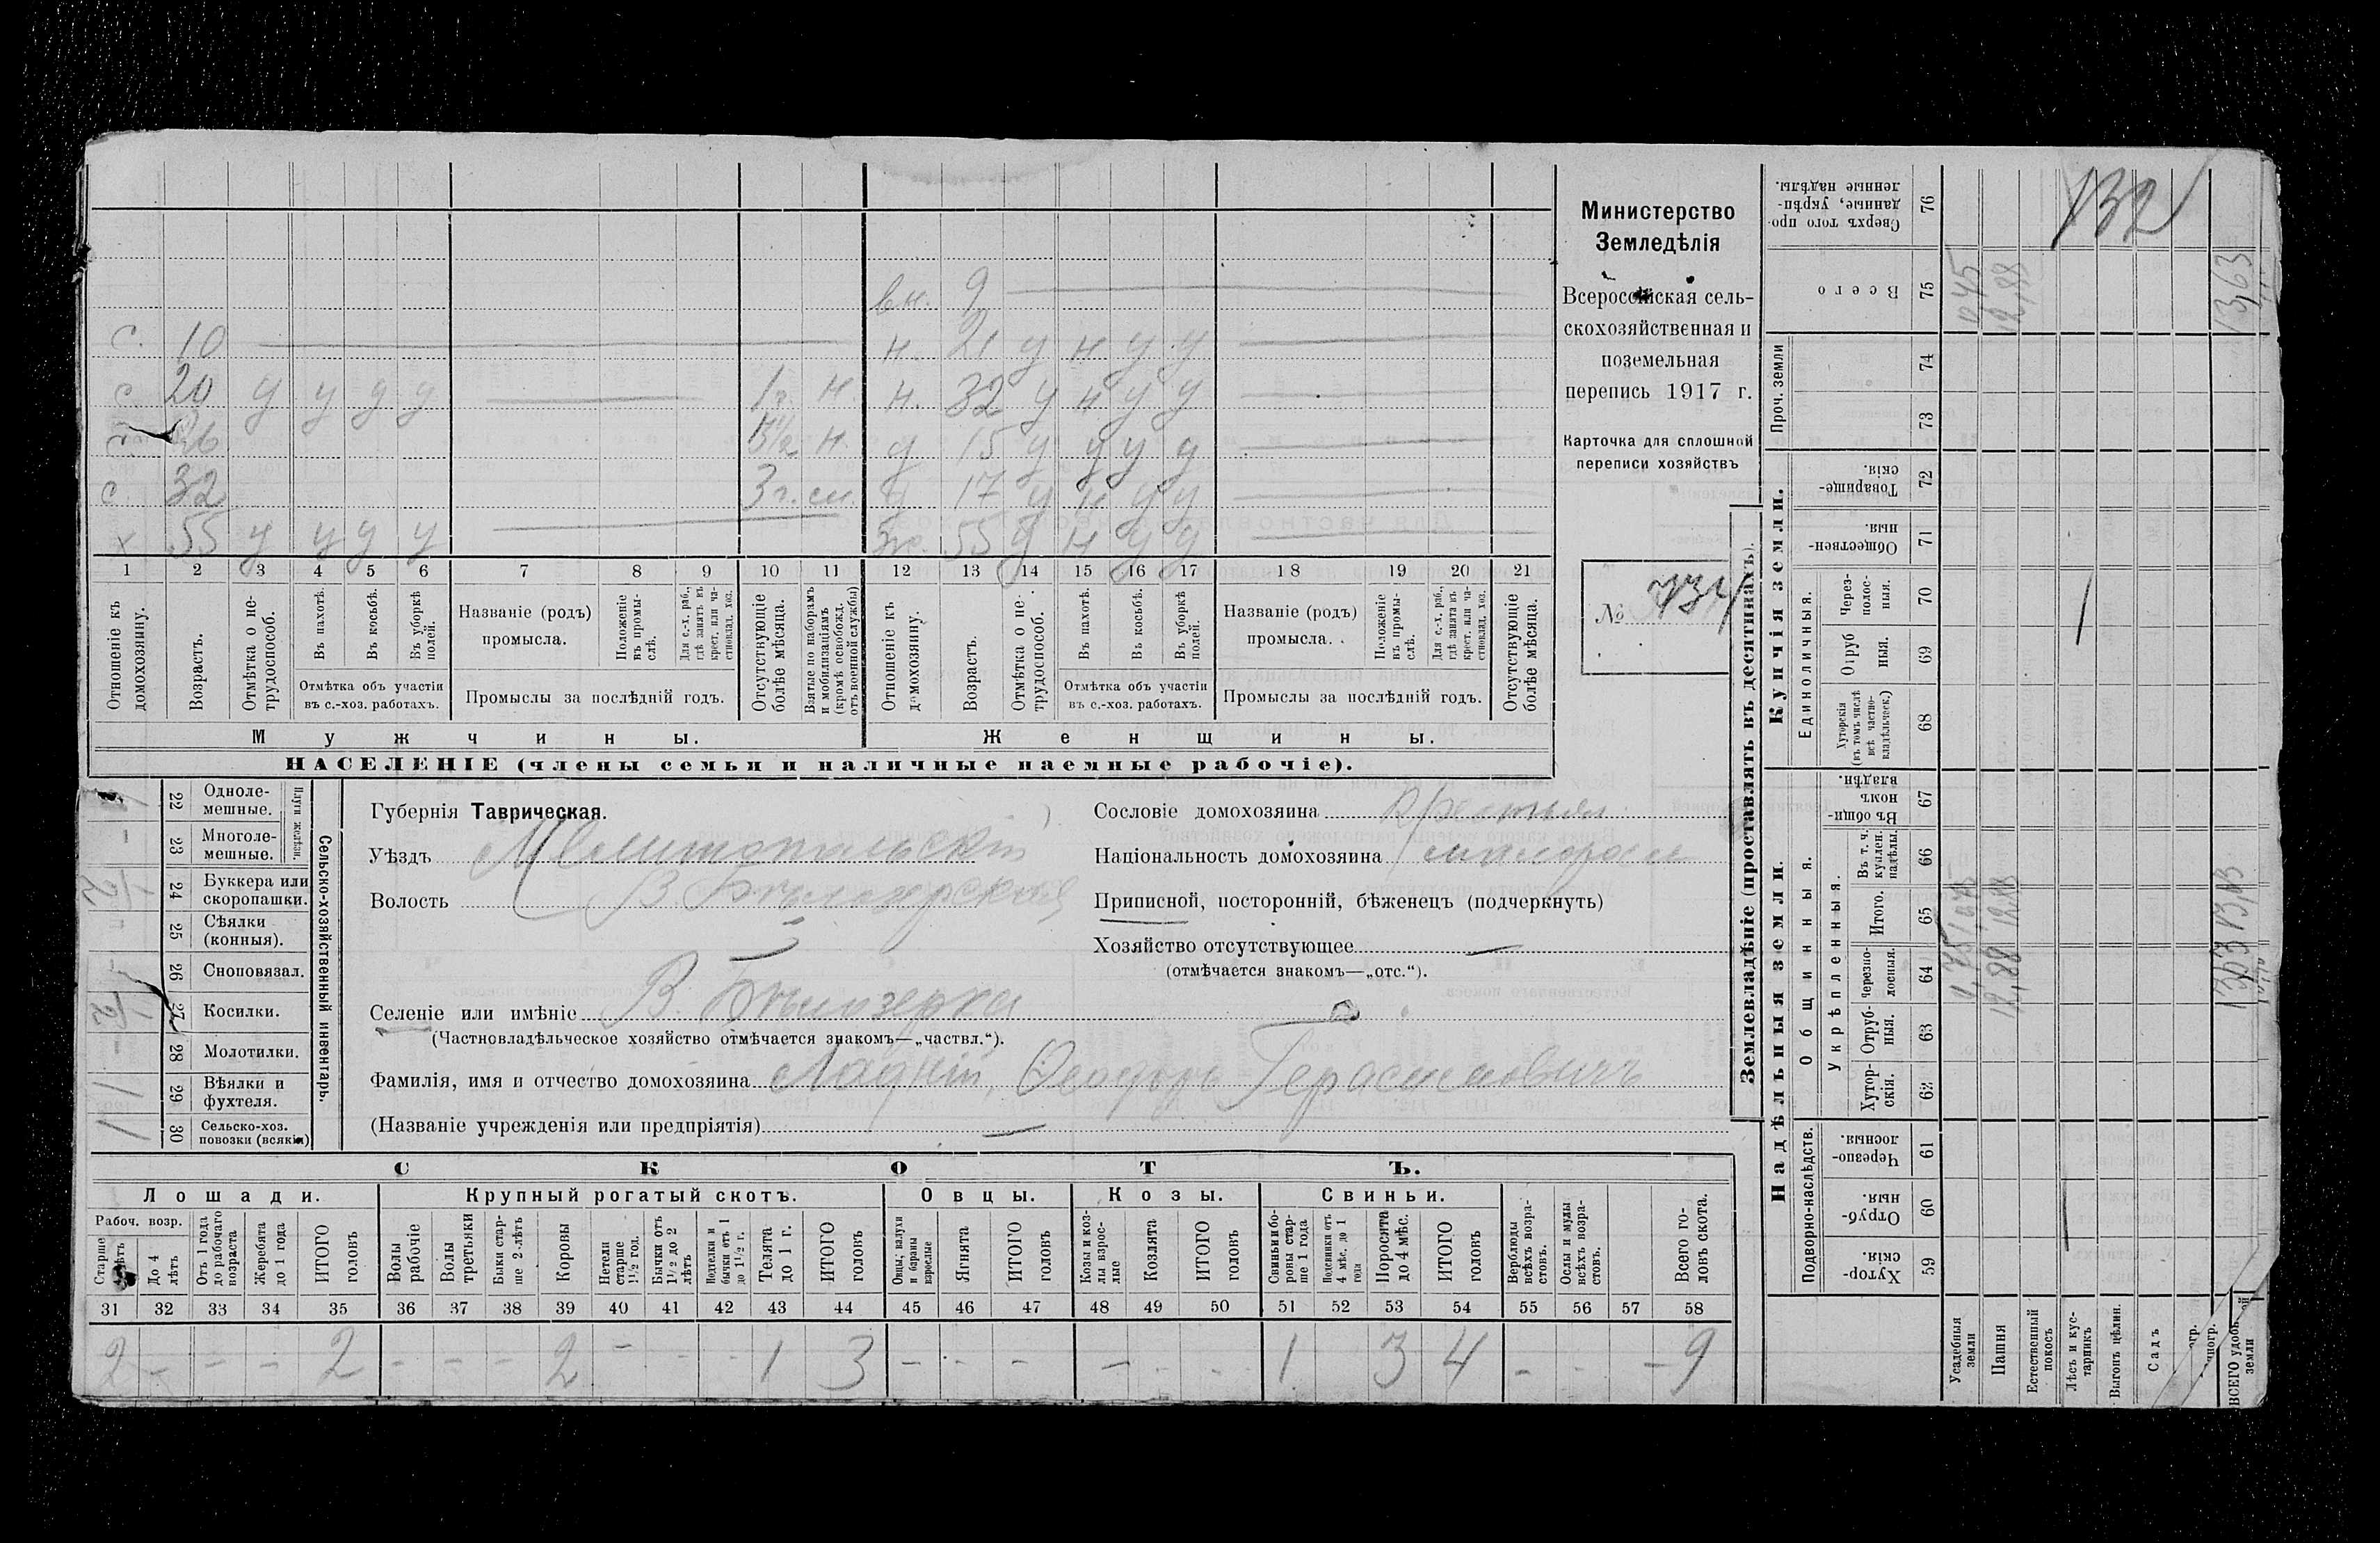 вн. 9
с. 10 н. 21 у н у у
с. 20 у у у у 1 г. н. н. 32 у н у у
26 1½ н. д 15 у у у у
с. 32 3 г. сп. д 17 у н у у
х 55 у у у у 55 у н у у
1 2 3 4 5 6 7 8 9 10 11 12 13 14 15 16 17 18 19 20 21
Отношеніе къ домохозяину.
Возрастъ.
Отмѣтка о не-
трудоспособ.
Въ пахотѣ.
Въ косьбѣ.
Въ уборкѣ полей.
Отмѣтка объ участіи
въ с.-хоз. работахъ.
Названіе (родъ)
промысла.
Положеніе въ промы-
слѣ.
Для с.-х. раб., гдѣ занятъ въ крест. или ча-
стновлад. хоз.
Промыслы за послѣдній годъ.
Отсутствующіе болѣе мѣсяца.
Взятые по наборамъ и мобилизаціямъ (кромѣ освобожд. отъ военной службы)
Отношеніе къ домохозяину.
Возрастъ.
Отмѣтка о не-
трудоспособ.
Въ пахотѣ.
Въ косьбѣ.
Въ уборкѣ полей.
Отмѣтка объ участіи
въ с.-хоз. работахъ.
Названіе (родъ)
промысла.
Положеніе въ промы-
слѣ.
Для с.-х. раб., гдѣ занята въ крест. или ча-
стновлад. хоз.
Промыслы за послѣдній годъ.
Отсутствующіе болѣе мѣсяца.
Мужчины. Женщины.
НАСЕЛЕНІЕ (члены семьи и наличные наемные рабочіе).
Министерство
Земледѣлія
Всероссійская сель-
скохозяйственная и
поземельная
перепись 1917 г.
Карточка для сплошной
переписи хозяйствъ
№ 734
22 Одноле-
мешные.
23 Многоле-
мешные.
Плуги желѣзн.
24 Буккера или
скоропашки.
25 Сѣялки
(конныя).
26 Сноповязал.
27 Косилки.
28 Молотилки.
29 Вѣялки и
фухтеля.
30 Сельско-хоз.
повозки (всякія)
Сельско-хозяйственный инвентарь.
Губернія Таврическая.
Уѣздъ Мелитопольскій
Волость В. Бѣлозерская
Селеніе или имѣніе В. Бѣлозерка
(Частновладѣльческое хозяйство отмѣчается знакомъ—„частвл.“).
Фамилія, имя и отчество домохозяина Ладній, Ѳеодоръ Герасимовичъ
(Названіе учрежденія или предпріятія) —
Сословіе домохозяина крестьян.
Національность домохозяина малоросс
Приписной, посторонній, бѣженецъ (подчеркнуть)
Хозяйство отсутствующее —
(отмѣчается знакомъ—„отс.“).
СКОТЪ.
Лошади. Крупный рогатый скотъ. Овцы. Козы. Свиньи.
Рабоч. возр.
Старше лѣтъ
До 4 лѣтъ
Отъ 1 года до рабочаго возраста
Жеребята до 1 года
ИТОГО головъ
Волы рабочіе
Волы третьяки
Быки стар-
ше 2-лѣтъ
Коровы
Нетели старше 1½ год.
Бычки отъ 1½ до 2 лѣтъ
Нетелки и бычки отъ 1 до 1½ г.
Телята до 1 г.
ИТОГО головъ
Овцы, валухи и бараны взрослые
Ягнята
ИТОГО головъ
Козы и коз-
лы взрос-
лые
Козлята
ИТОГО головъ
Свиньи и бо-
ровы стар-
ше 1 года
Подсвинки отъ 4 мѣс. до 1 года
Поросята до 4 мѣс.
ИТОГО головъ
Верблюды всѣхъ возра-
стовъ.
Ослы и мулы всѣхъ возра-
стовъ.
Всего го-
ловъ скота.
31 32 33 34 35 36 37 38 39 40 41 42 43 44 45 46 47 48 49 50 51 52 53 54 55 56 57 58
2 - - - 2 - - - 2 - - - 1 3 - - - - - - 1 3 4 - - - 9
Землевладѣніе (проставлять въ десятинахъ).
Надѣльныя земли. Купчія земли.
Подворно-наслѣдств.
Общинныя.
Укрѣпленныя.
Единоличныя.
Проч. земли
Хутор-
скія. 59
Отруб-
ныя. 60
Черезпо-
лосныя. 61
Хутор-
скія. 62
Отруб-
ныя. 63
Черезпо-
лосныя. 64
Итого. 65
Въ т. ч. куплен. надѣлы. 66
Въ общи-
номъ владѣн. 67
Хуторскія (въ томъ числѣ всѣ частно-
владѣльческ.) 68
Отруб
ныя. 69
Через-
полос-
ныя. 70
Обществен-
ныя. 71
Товарище-
скія. 72
73
74
Всего 75
Сверхъ того про-
данные, укрѣп-
ленные надѣлы. 76
Усадебныя земли
Пашня 12,88 12,88 12,88
Естественный покосъ
Лѣсъ и кус-
тарникъ
Выгонъ цѣлин.
Садъ
ВСЕГО удобн. земли 13,63
132